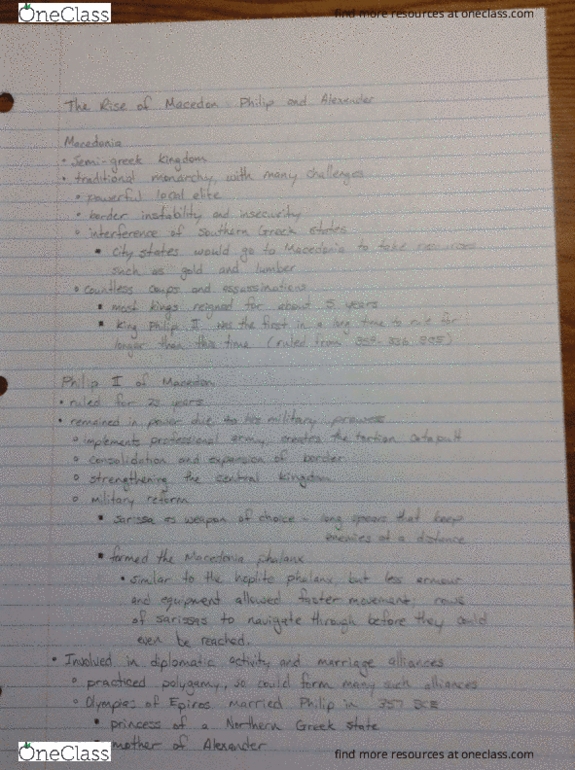 OneClass
find more resources at oneclass.com
The Rise of Macedon: Philip and Alexander
Macedonia
• Semi-greek kingdom
• traditional monarchy, with many challenges
• powerful local elite
• border instability and insecurity
◦ interference of Southern Greek states
▪ city states would go to Macedonia to take resources
such as gold and lumber
◦ countless coups and assassinations
▪ most kings reigned for about 5 years
▪ King Philip II was the first in a long time to rule for
longer than this time (ruled from 359-336 BCE)
Philip II of Macedon
• ruled for 23 years
• remained in power due to his military prowess
◦ implements professional army, creates the tortion catapult
◦ consolidation and expansion of border
◦ strengthening the central kingdom
◦ military reform
▪ sarissa as weapon of choice - long spears that keep
enemies at a distance
▪ formed the Macedonia phalanx
• similar to the hoplite phalanx, but less armour
and equipment allowed faster movement; rows
of sarissas to navigate through before they could
even be reached.
• Involved in diplomatic activity and marriage alliances
◦ practiced polygamy, so could form many such alliances
◦ Olympies of Epiros married Philip in 357 BCE
▪ princess of a Northern Greek state
▪ mother of Alexander
OneClass
find more resources at oneclass.com